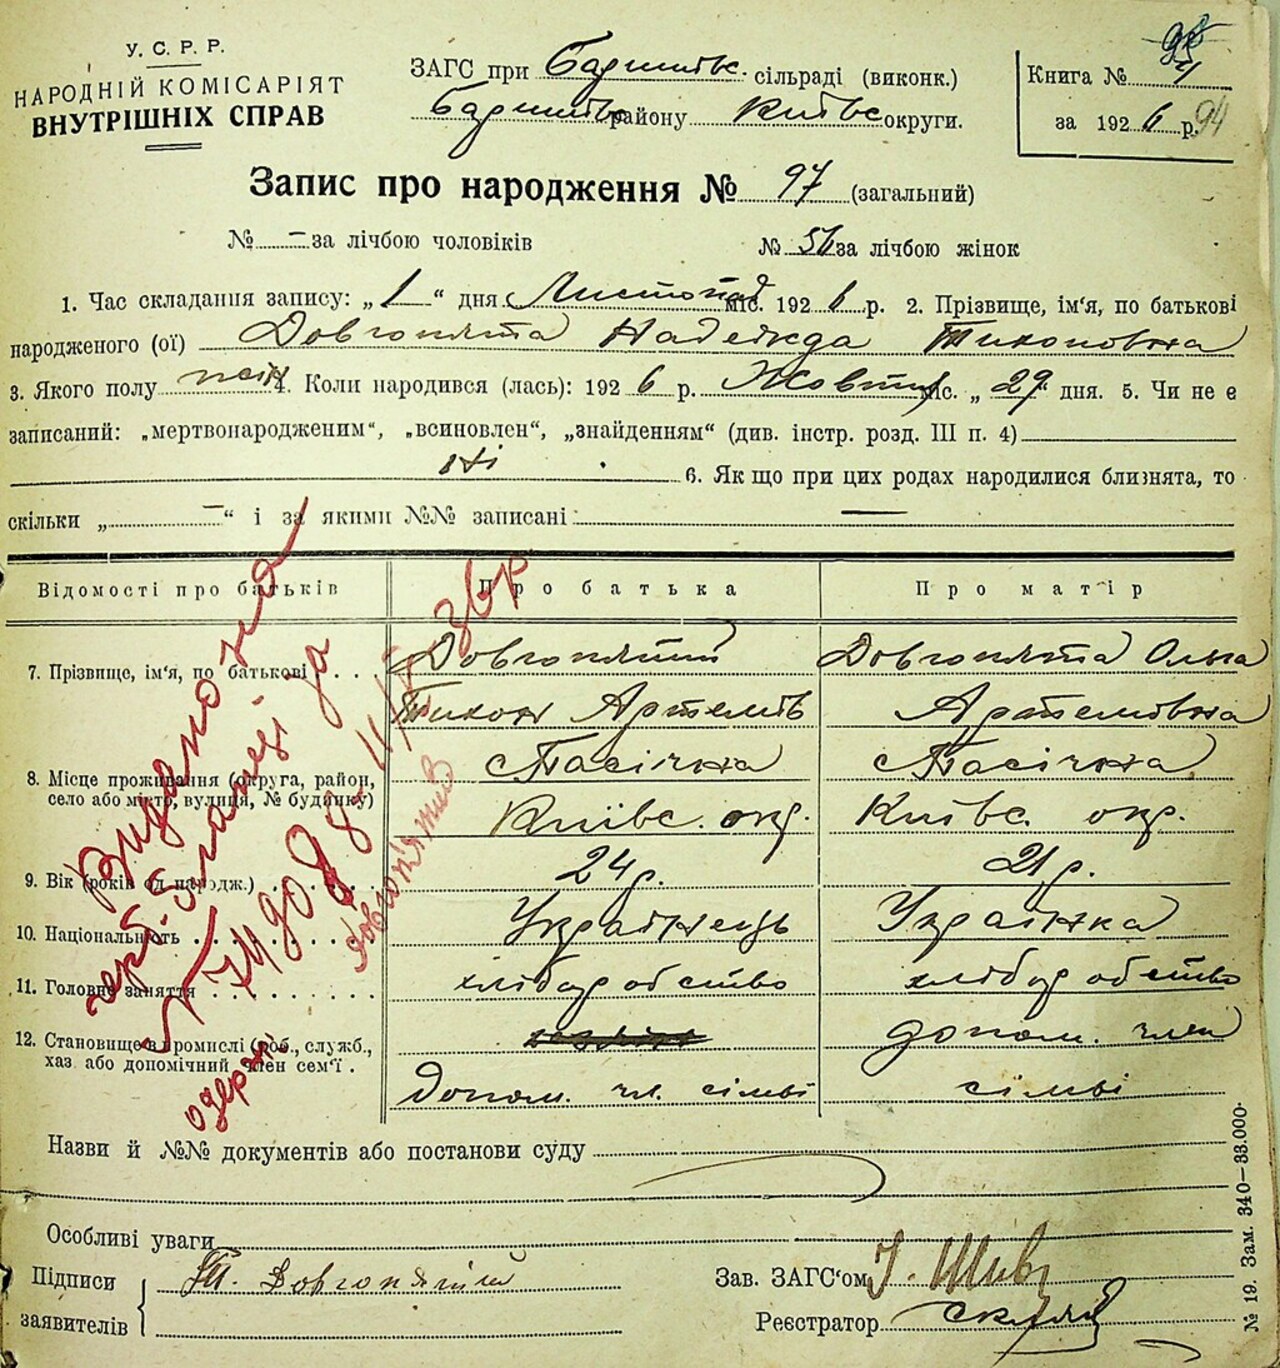 У. С. Р. Р.
НАРОДНІЙ КОМІСАРІЯТ
ВНУТРІШНІХ СПРАВ
ЗАГС при Баришівс. сільраді (виконк.)
Баришівс району Київс округи.
Книга № 4
за 1926 р. 94
Запис про народження № 97 (загальний)
№ – за лічбою чоловіків № 56 за лічбою жінок
1. Час складання запису: „ 1 “ дня Листопад міс. 1926 р. 2. Прізвище, ім'я, по батькові
народженого (ої) Довгопята Надежда Тихоновна
3. Якого полу жін 4. Коли народився (лась): 1926 р. Жовтня міс. „ 29 “ дня. 5. Чи не є
записаний: „мертвонародженим“, „всиновлен“, „знайденням“ (див. інстр. розд. III п. 4)
ні 6. Як що при цих родах народилися близнята, то
скільки „ – “ і за якими №№ записані: —
Відомості про батьків Про батька Про матір
7. Прізвище, ім'я, по батькові . . . Довгопятий Довгопята Ольга
Тихон Артемів Артемівна
8. Місце проживання (округа, район, с Пасічна с Пасічна
село або місто, вулиця, № будинку) Київс. окр. Київс. окр.
9. Вік (років од народж.) . . . . . . 24 р. 21 р.
10. Національність . . . . . . . . Українець Українка
11. Головне заняття . . . . . . . . хліборобство хліборобство
12. Становище в промислі (роб., служб.,
хаз. або допомічний член сем'ї . допом. чл. сімьі допом. член сімьі
Видано
№ 74908
Довгоп'ятив
Назви й №№ документів або постанови суду
Особливі уваги
Підписи
заявителів
Т. Довгопятий
Зав. ЗАГС'ом
Реєстратор
№ 19. Зам. 340—33.000.